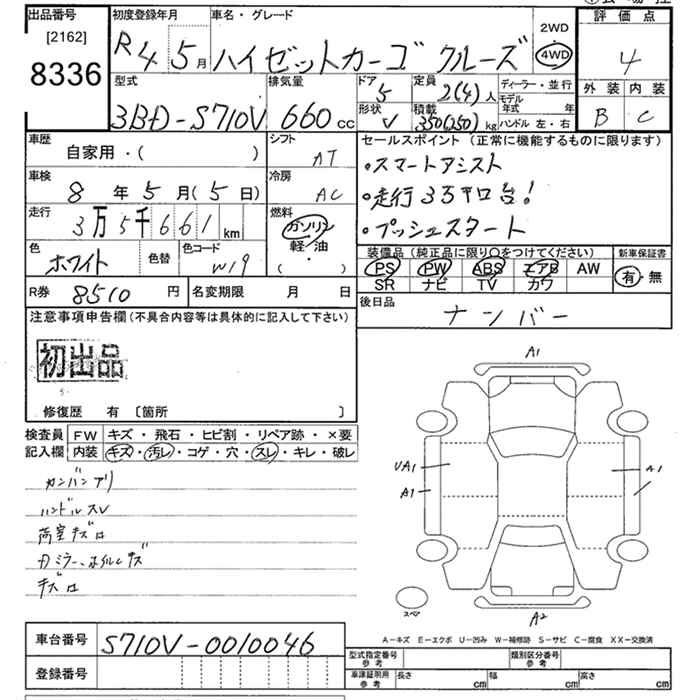 出品番号
[2162]
8336
初度登録年月
R4 5月
車名・グレード
ハイゼットカーゴ クルーズ
2WD
4WD
評価点
4
外装 内装
B C
型式
3BD-S710V
排気量
660 cc
ドア
5
形状
V
定員
2(4)人
積載
350(250)kg
ディーラー・並行
モデル年式 年
ハンドル 左・右
車歴
自家用・( )
シフト
AT
車検
8年5月(5日)
冷房
AC
走行
3万5千661km
燃料
ガソリン
軽・油
( )
色
ホワイト
色替
色コード
W19
R券 8510円
名変期限 月 日
セールスポイント(正常に機能するものに限ります)
・スマートアシスト
・走行3万キロ台!
・プッシュスタート
装備品(純正品に限り○をつけてください)
PS PW ABS エアB AW
SR ナビ TV カワ
新車保証書
有・無
後日品
ナンバー
注意事項申告欄(不具合内容等は具体的に記入して下さい)
初出品
修復歴 有 〔箇所 〕
検査員記入欄
FW キズ・飛石・ヒビ割・リペア跡・×要
内装 キズ・汚レ・コゲ・穴・スレ・キレ・破レ
カンバンアリ
ハンドルスレ
荷室キズロ
キズロ
A1
UA1
A1
A1
A2
スペア
A-キズ E-エクボ U-凹み W-補修跡 S-サビ C-腐食 XX-交換済
車台番号 S710V-0010046
登録番号
型式指定番号 参考
類別区分番号 参考
車庫証明用 参考
長さ cm 幅 cm 高さ cm